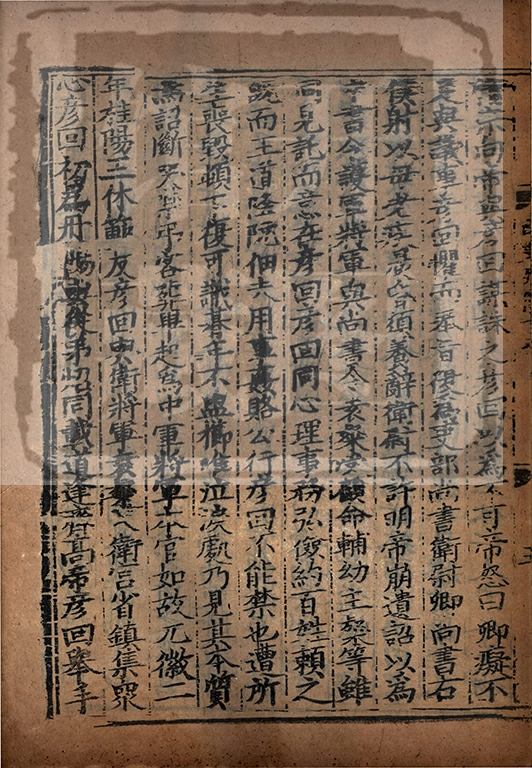 尚帝與彥回謀誅之彥回以為不可帝怒曰卿癡不
足與議事彥回懼而奉旨復為吏部尚書衛尉卿尚書右
僕射以母老疾晨昏須養辭衛尉不許明帝崩遺詔以為
中書令護軍將軍與尚書令袁粲受顧命輔幼主粲等雖
同見託而意在彥回彥回同心理事務弘儉約百姓賴之
既而王道隆阮佃夫用事姦賂公行彥回不能禁也遭所
生喪毀頓不復可識朞年不盥櫛唯泣淚處乃見其本質
焉詔斷哭禁弔客葬畢起為中軍將軍本官如故元徽二
年桂陽王休範反彥回與衛將軍袁粲入衛宮省鎮集眾
心彥回初為丹陽與從弟炤同載道逢齊高帝彥回舉手